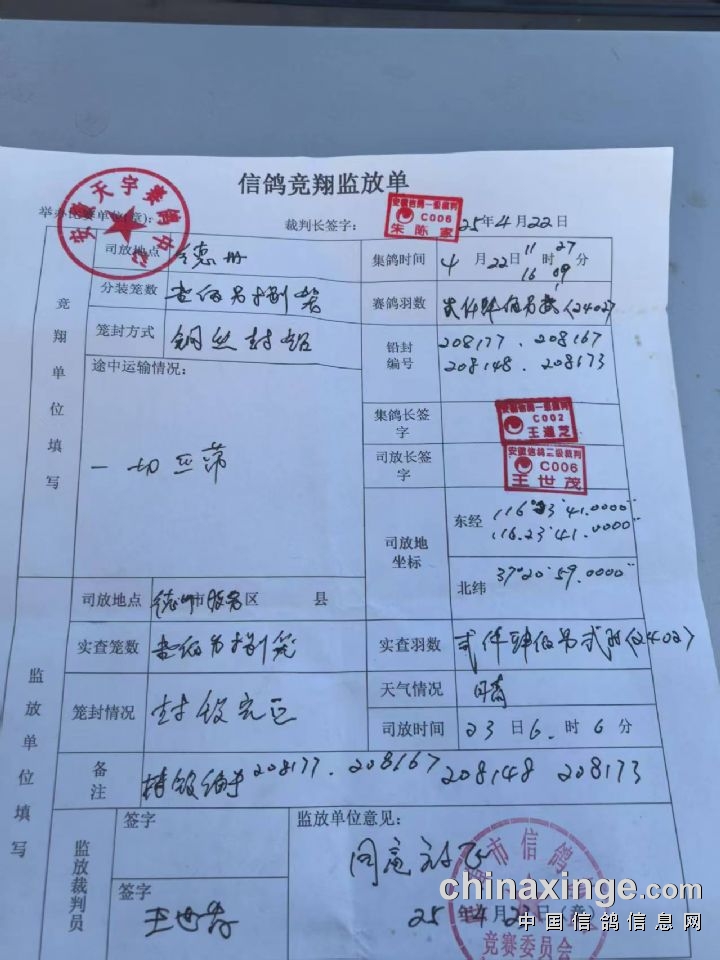 信鸽竞翔监放单
安徽天宇赛鸽中心
举办比赛单位(章):
裁判长签字:
安徽信鸽一级裁判
C006
朱陈家
25年4月22日
竞翔单位填写
司放地点 德州
集鸽时间 4月22日 11时27分
16 09
分装笼数
赛鸽羽数 (2402)
笼封方式 钢丝封铅
铅封编号 208177、208167
208148、208173
途中运输情况:
一切正常
集鸽长签字
安徽信鸽一级裁判
C002
王道芝
司放长签字
安徽信鸽二级裁判
C006
王世茂
司放地坐标
东经 116°23′41.0000″
116.23′41.0000″
北纬 37°20′59.0000″
监放单位填写
司放地点 德州市服务区 县
实查笼数
实查羽数 (2402)
笼封情况 封铅完正
天气情况 晴
司放时间 23日6时6分
备注 208177、208167 208148 208173
监放裁判员
签字
签字
监放单位意见:
同意放飞
25年4月23日(章)
市信鸽
竞赛委员会
chinaxinge.com
中国信鸽信息网